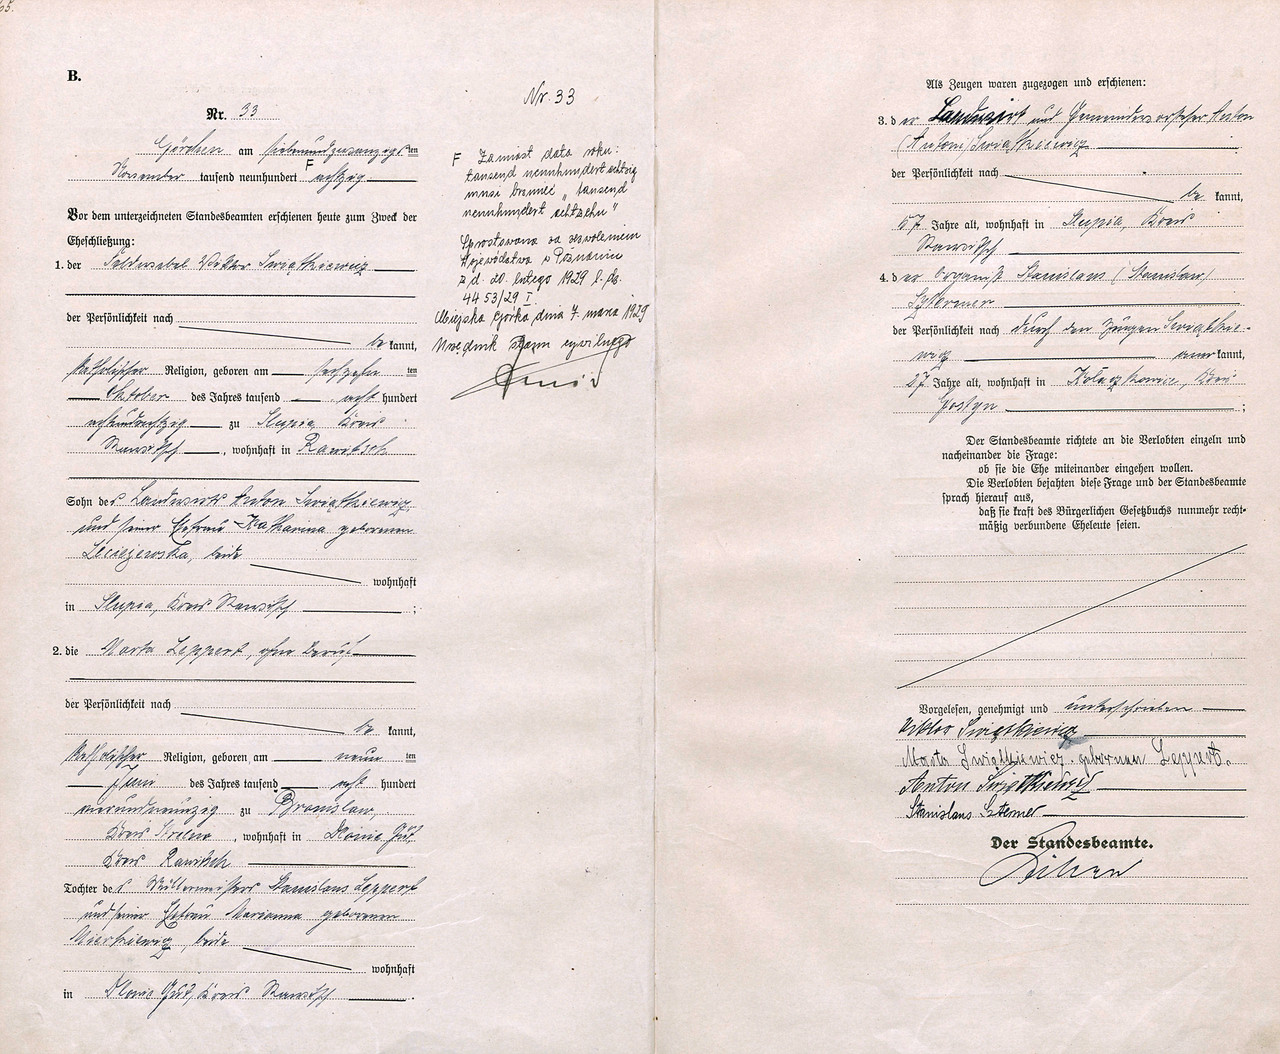 65.
B.
Nr. 33
Görchen am siebenundzwanzigsten
November tausend neunhundert F achtzig
Vor dem unterzeichneten Standesbeamten erschienen heute zum Zweck der
Eheschließung:
1. der Feldwebel Viktor Swiątkiewicz
der Persönlichkeit nach
be kannt,
katholischer Religion, geboren am sechzehn ten
Oktober des Jahres tausend acht hundert
achtundachtzig zu Slupia, Kreis
Rawitsch, wohnhaft in Rawitsch
Sohn des Landwirts Anton Swiątkiewicz
und seiner Ehefrau Katharina geborenen
beide
wohnhaft
in Slupia, Kreis Rawitsch ;
2. die Marta Leppert, ohne Beruf
der Persönlichkeit nach
be kannt,
katholischer Religion, geboren am neun ten
Juni des Jahres tausend acht hundert
vierundneunzig zu
Kreis Strelno, wohnhaft in Dlonie Gut,
Kreis Rawitsch
Tochter des Müllermeisters Stanislaus Leppert
und seiner Ehefrau Marianna geborenen
beide
wohnhaft
in Dlonie Gut, Kreis Rawitsch .
Nr. 33
F Zamiast data roku:
tausend neunhundert achtzig
musi brzmieć „tausend
neunhundert achtzehn"
Sprostowano za zezwoleniem
Województwa w Poznaniu
z d. 20. lutego 1929 l. dz.
4453/29 I.
Miejska Górka dnia 7. marca 1929
Urzędnik stanu cywilnego
Als Zeugen waren zugezogen und erschienen:
3. der Landwirt und Gemeindevorsteher Anton
(Antoni) Swiątkiewicz
der Persönlichkeit nach
be kannt,
57 Jahre alt, wohnhaft in Slupia, Kreis
Rawitsch
4. der Organist Stanislaus (Stanislaw)
der Persönlichkeit nach durch den Zeugen Swiątkie-
wicz anerkannt,
27 Jahre alt, wohnhaft in Kolaczkowice, Kreis
Gostyn ;
Der Standesbeamte richtete an die Verlobten einzeln und
nacheinander die Frage:
ob sie die Ehe miteinander eingehen wollen.
Die Verlobten bejahten diese Frage und der Standesbeamte
sprach hierauf aus,
daß sie kraft des Bürgerlichen Gesetzbuchs nunmehr recht-
mäßig verbundene Eheleute seien.
Vorgelesen, genehmigt und unterschrieben
Viktor Swiątkiewicz
Marta Swiątkiewicz geborenen Leppert.
Anton Swiątkiewicz
Stanislaus
Der Standesbeamte.